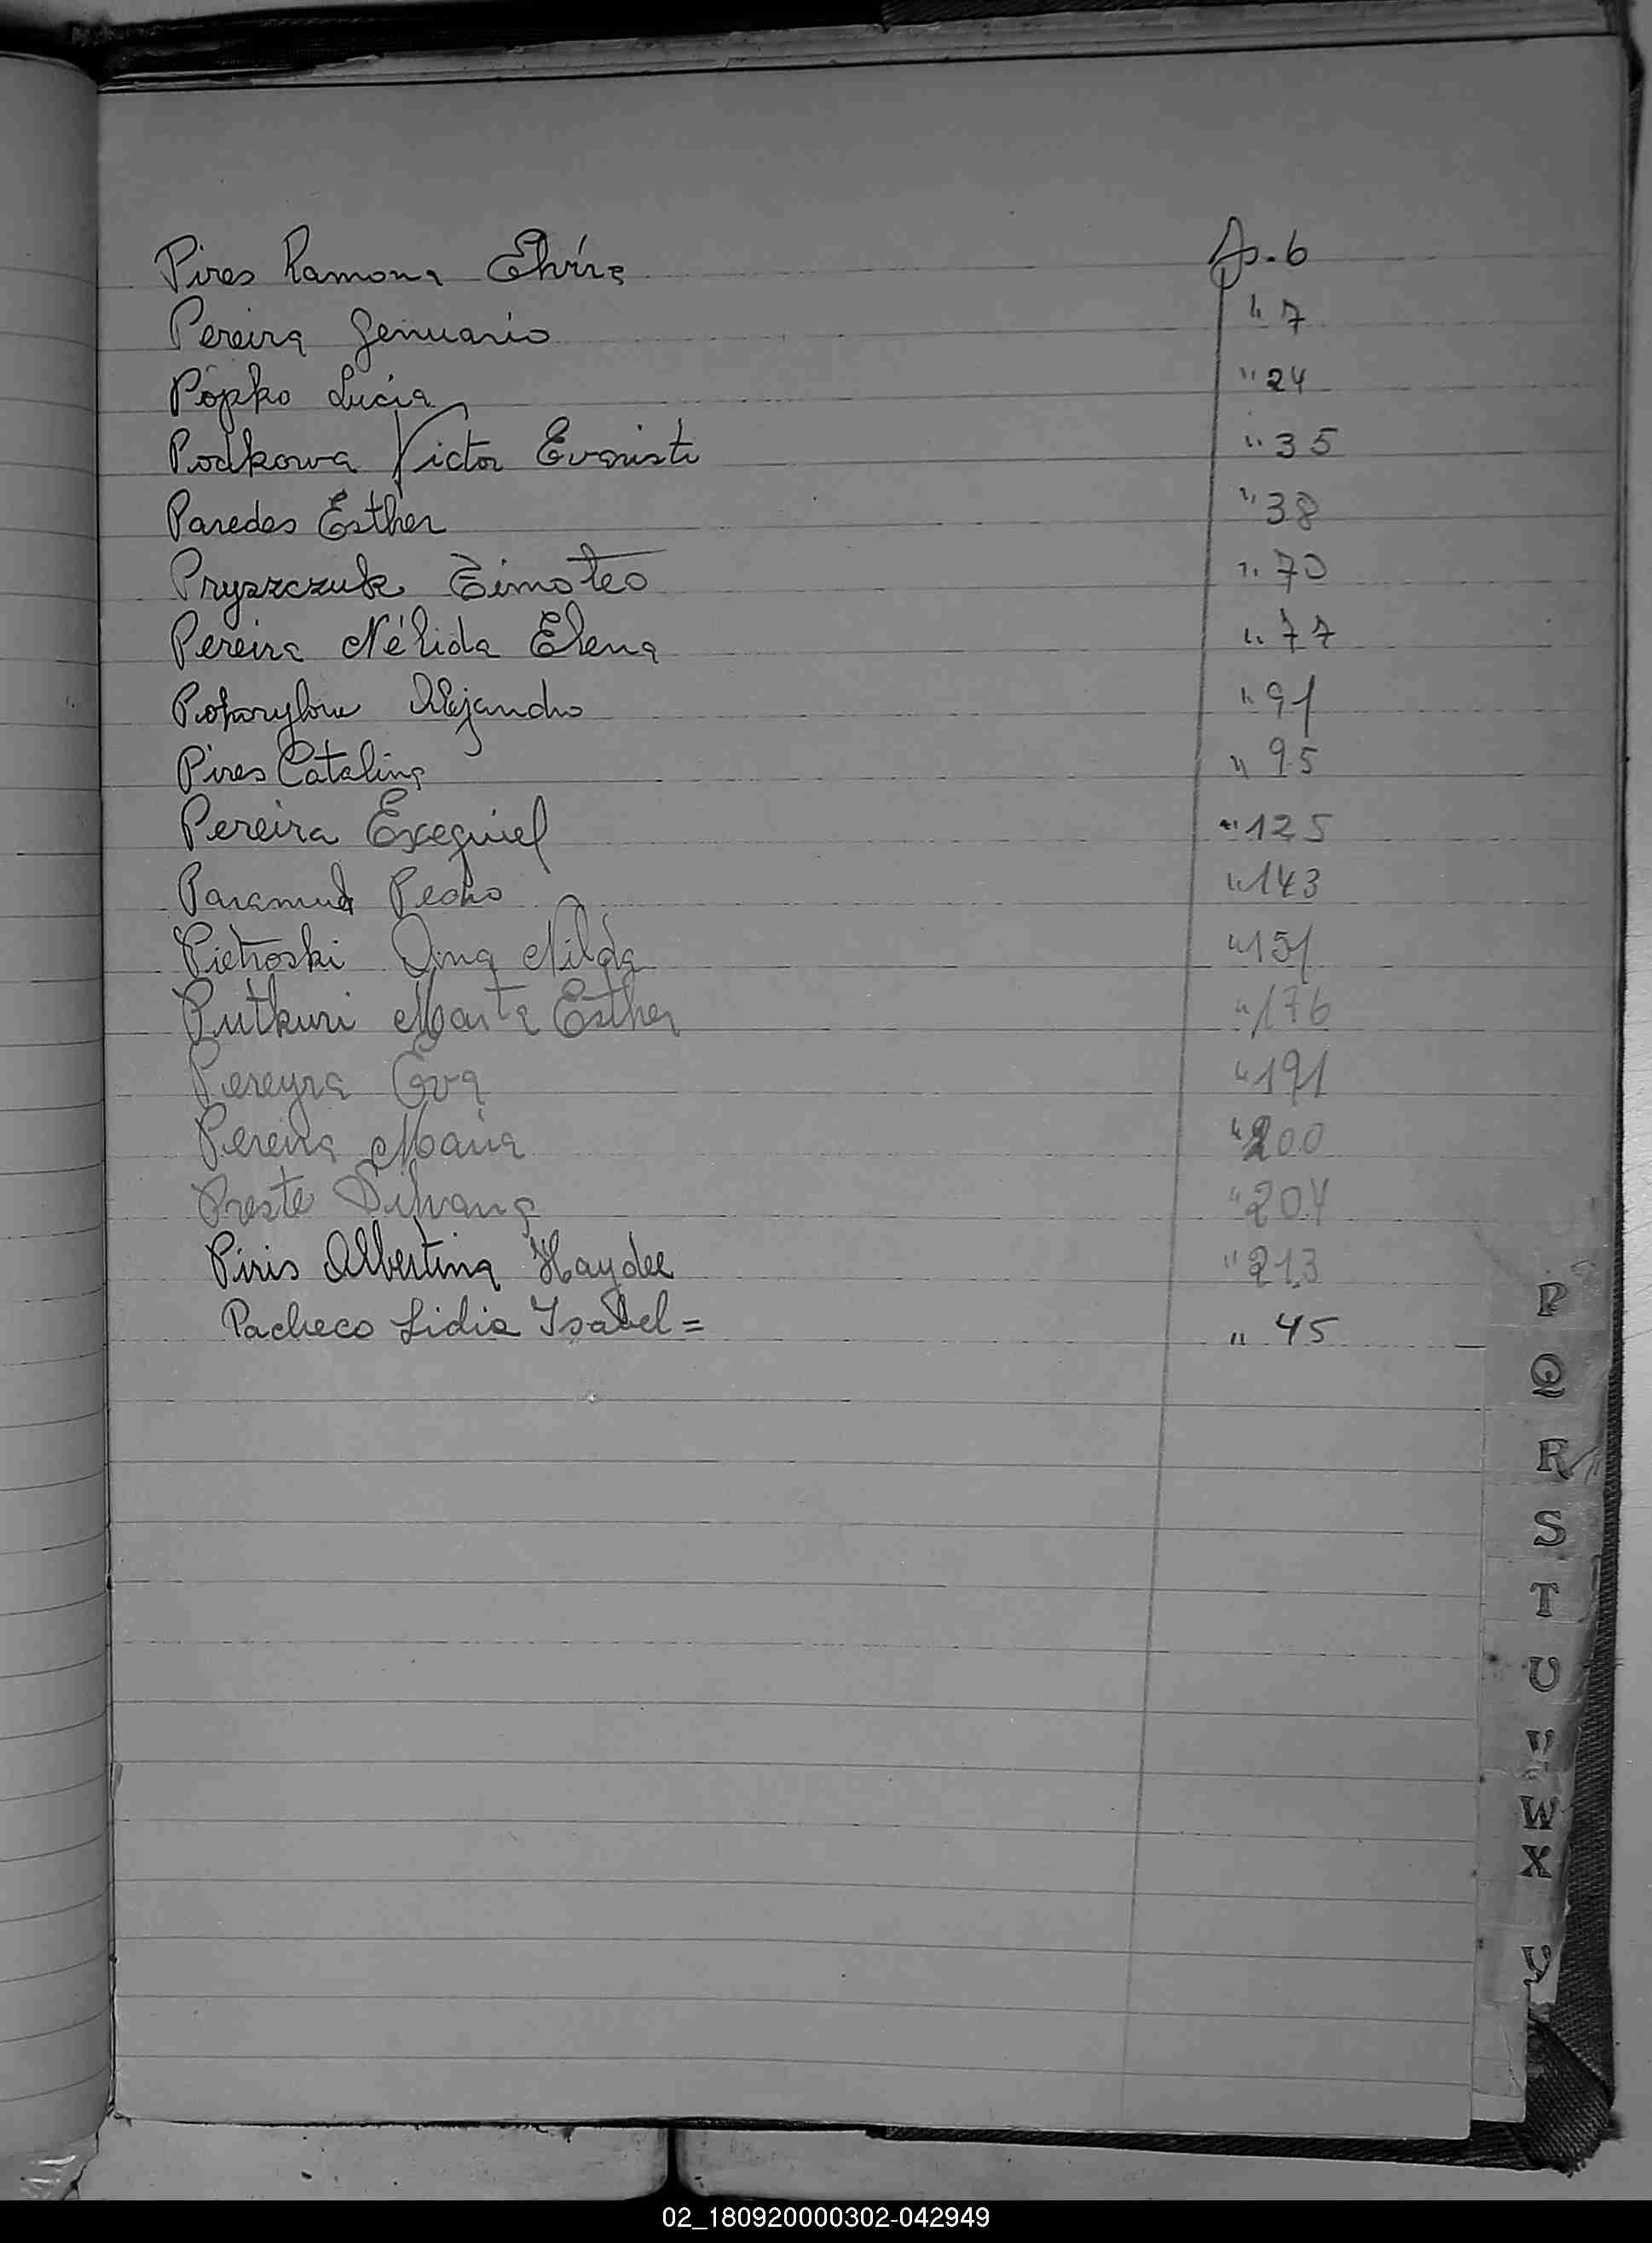 Pires Ramona Elvira fs. 6
Pereira Genuario " 7
Popko Lucia " 24
Podkowa Victor Evaristo " 35
Paredes Esther " 38
Pryszczuk Timoteo " 70
Pereira Nélida Elena " 77
Alejandro " 91
Pires Catalina " 95
Pereira Exequiel " 125
Pedro " 143
Pietroski Nilda " 151
Putkuri Marta Esther " 176
Pereyra Eva " 191
Pereira Maria " 200
Preste Silvana " 204
Piris Albertina Haydee " 213
Pacheco Lidia Isabel = " 45
P
Q
R
S
T
U
V
W
X
Y
02_180920000302-042949